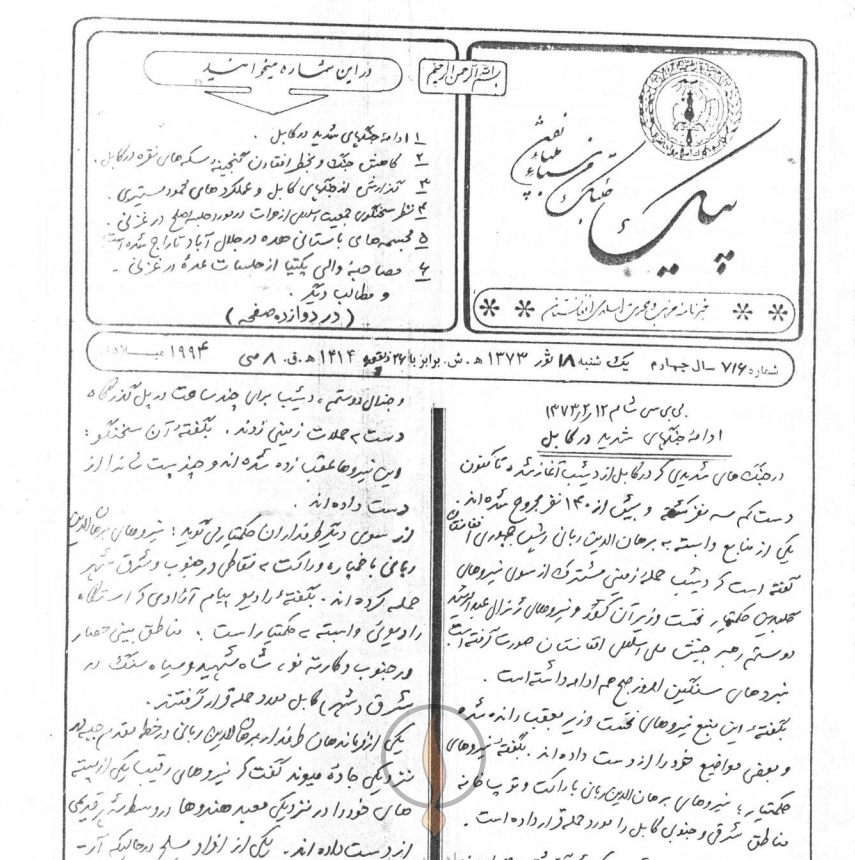 بسم الله الرحمن الرحیم
پیک
خبرنامه مرکز فرهنگی اسلامی افغانستان
در این شماره میخوانید
۱ ادامهٔ جنگهای شدید در کابل .
۲ کاهش جنگ و بخطر افتادن گنجینه و سکه های نقره در کابل .
۳ گزارشی از جنگهای کابل و عملکردهای محمود مستیری .
۴ نظر سخنگوی جمعیت اسلامی از هرات در مورد جلسه صلح در غزنی .
۵ مجسمه های باستانی هده در جلال آباد تاراج شده است
۶ مصاحبهٔ والی پکتیا از جلسات عمدهٔ در غزنی .
و مطالب دیگر .
( در دوازده صفحه )
شماره ۷۱۶ سال چهارم یک شنبه ۱۸ ثور ۱۳۷۳ ه.ش. برابر با ۲۶ ذیقعده ۱۴۱۴ ه.ق. ۸ می ۱۹۹۴ میلادی
بی بی سی شام ۱۳۷۳٫۲٫۱۲
ادامهٔ جنگهای شدید در کابل
در جنگ های شدیدی که در کابل از دیشب آغاز شده تا کنون
دست کم سه نفر کشته و بیش از ۱۴۰ نفر مجروح شده اند .
یکی از منابع وابسته به برهان الدین ربانی رئیس جمهوری افغانستان
گفته است که دیشب حمله زمینی مشترک از سوی نیروهای
گلبدین حکمتیار نخست وزیر آن کشور و نیروهای ژنرال عبدالرشید
دوستم رهبر جنبش ملی اسلامی افغانستان صورت گرفته است
نبردهای سنگین امروز صبح هم ادامه داشته است .
بگفتهٔ این منبع نیروهای نخست وزیر بعقب رانده شده
و بعضی مواضع خود را از دست داده اند . بگفتهٔ نیروهای
حکمتیار ؛ نیروهای برهان الدین ربانی با راکت و توپخانه
مناطق شرقی و جنوبی کابل را مورد حمله قرار داده است .
و جنرال دوستم ، دیشب برای چند ساعت در پل گذرگاه
دست به حملات زمینی زدند . بگفتهٔ آن سخنگو :
این نیروها عقب زده شده اند و چند پسته را از
دست داده اند .
از سوی دیگر طرفداران حکمتیار می گوید : نیروهای برهان الدین
ربانی با خمپاره و راکت به نقاطی در جنوب و شرق شهر
حمله کرده اند . بگفتهٔ رادیو پیام آزادی که ایستگاه
رادیوئی وابسته به حکمتیار است : مناطق بینی حصار
در جنوب و کارته نو ، شاه شهید و سیاه سنگ در
شرق شهر کابل مورد حمله قرار گرفتند .
یکی از فرماندهان طرفدار برهان الدین ربانی در خط مقدم جبهه در
نزدیکی جادهٔ میوند گفت که نیروهای رقیب یکی از پسته
های خود را در نزدیکی معبد هندوها در وسط شهر قدیمی
از دست داده اند . یکی از افراد مسلح در حالیکه آر -